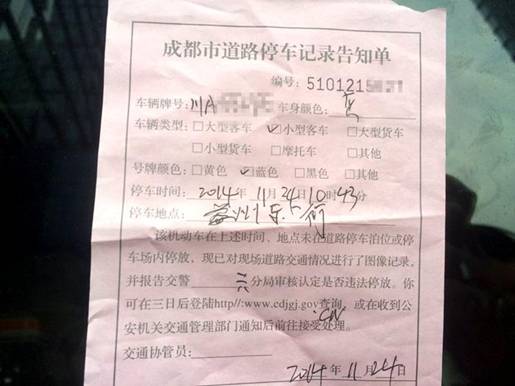 成都市道路停车记录告知单
编号: 5101215
车辆牌号: 川A 车身颜色:
车辆类型: □大型客车 ☑小型客车 □大型货车
□小型货车 □摩托车 □其他
号牌颜色: □黄色 ☑蓝色 □黑色 □其他
停车时间: 2014年11月24日10时43分
停车地点: 益州
该机动车在上述时间、地点未在道路停车泊位或停
车场内停放,现已对现场道路交通情况进行了图像记录。
并报告交警 分局审核认定是否违法停放。你
可在三日后登陆http//:www.cdjgj.gov查询,或在收到公
.CN
安机关交通管理部门通知后前往接受处理。
交通协管员:
2014年11月24日